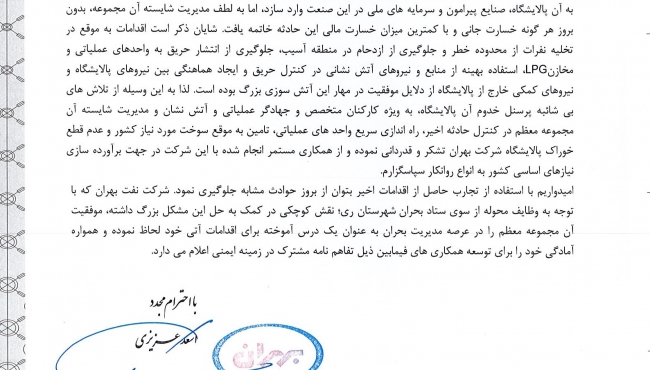 به آن پالایشگاه، صنایع پیرامون و سرمایه های ملی در این صنعت وارد سازد، اما به لطف مدیریت شایسته آن مجموعه، بدون
بروز هر گونه خسارت جانی و با کمترین میزان خسارت مالی این حادثه خاتمه یافت. شایان ذکر است اقدامات به موقع در
تخلیه نفرات از محدوده خطر و جلوگیری از ازدحام در منطقه آسیب، جلوگیری از انتشار حریق به واحدهای عملیاتی و
مخازنLPG، استفاده بهینه از منابع و نیروهای آتش نشانی در کنترل حریق و ایجاد هماهنگی بین نیروهای پالایشگاه و
نیروهای کمکی خارج از پالایشگاه از دلایل موفقیت در مهار این آتش سوزی بزرگ بوده است. لذا به این وسیله از تلاش های
بی شائبه پرسنل خدوم آن پالایشگاه، به ویژه کارکنان متخصص و جهادگر عملیاتی و آتش نشان و مدیریت شایسته آن
مجموعه معظم در کنترل حادثه اخیر، راه اندازی سریع واحد های عملیاتی، تامین به موقع سوخت مورد نیاز کشور و عدم قطع
خوراک پالایشگاه شرکت بهران تشکر و قدردانی نموده و از همکاری مستمر انجام شده با این شرکت در جهت برآورده سازی
نیازهای اساسی کشور به انواع روانکار سپاسگزارم.
امیدواریم با استفاده از تجارب حاصل از اقدامات اخیر بتوان از بروز حوادث مشابه جلوگیری نمود. شرکت نفت بهران که با
توجه به وظایف محوله از سوی ستاد بحران شهرستان ری؛ نقش کوچکی در کمک به حل این مشکل بزرگ داشته، موفقیت
آن مجموعه معظم را در عرصه مدیریت بحران به عنوان یک درس آموخته برای اقدامات آتی خود لحاظ نموده و همواره
آمادگی خود را برای توسعه همکاری های فیمابین ذیل تفاهم نامه مشترک در زمینه ایمنی اعلام می دارد.
با احترام مجدد
اسعد عزیزی
بهران